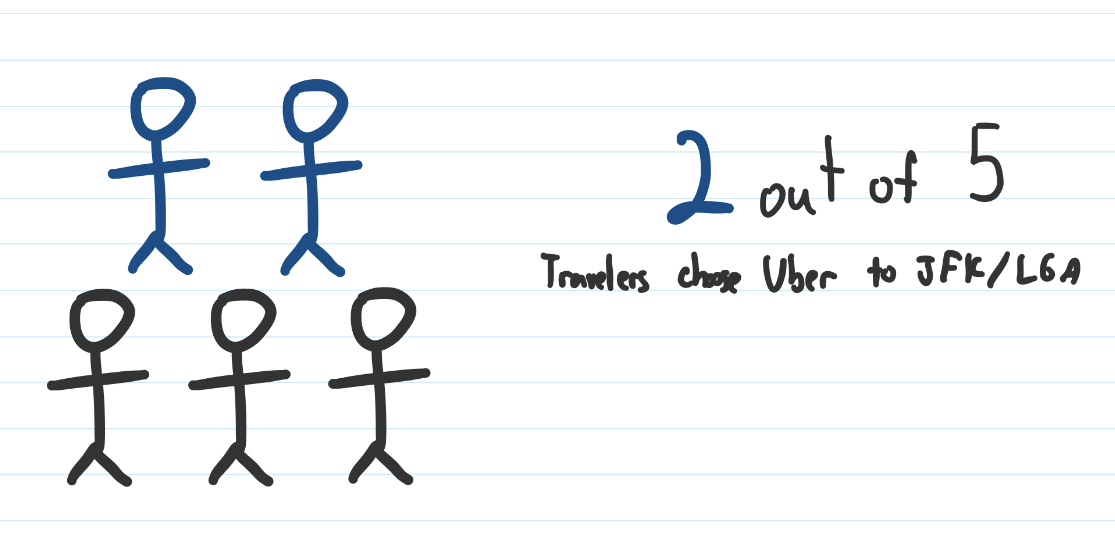 2 out of 5
Travelers choose Uber to JFK/LGA